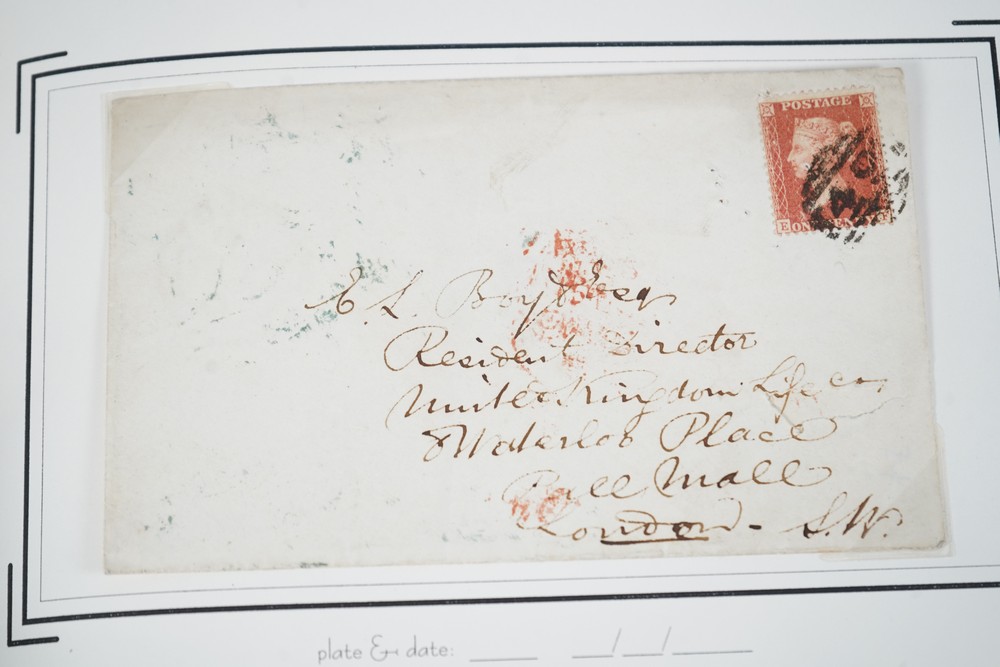 POSTAGE
E ONE PENNY E
E. L. Boyd Esqr
Resident Director
United Kingdom Life Co
8 Waterloo Place
Pall Mall
London - S.W.
plate & date: ____ __/__/____